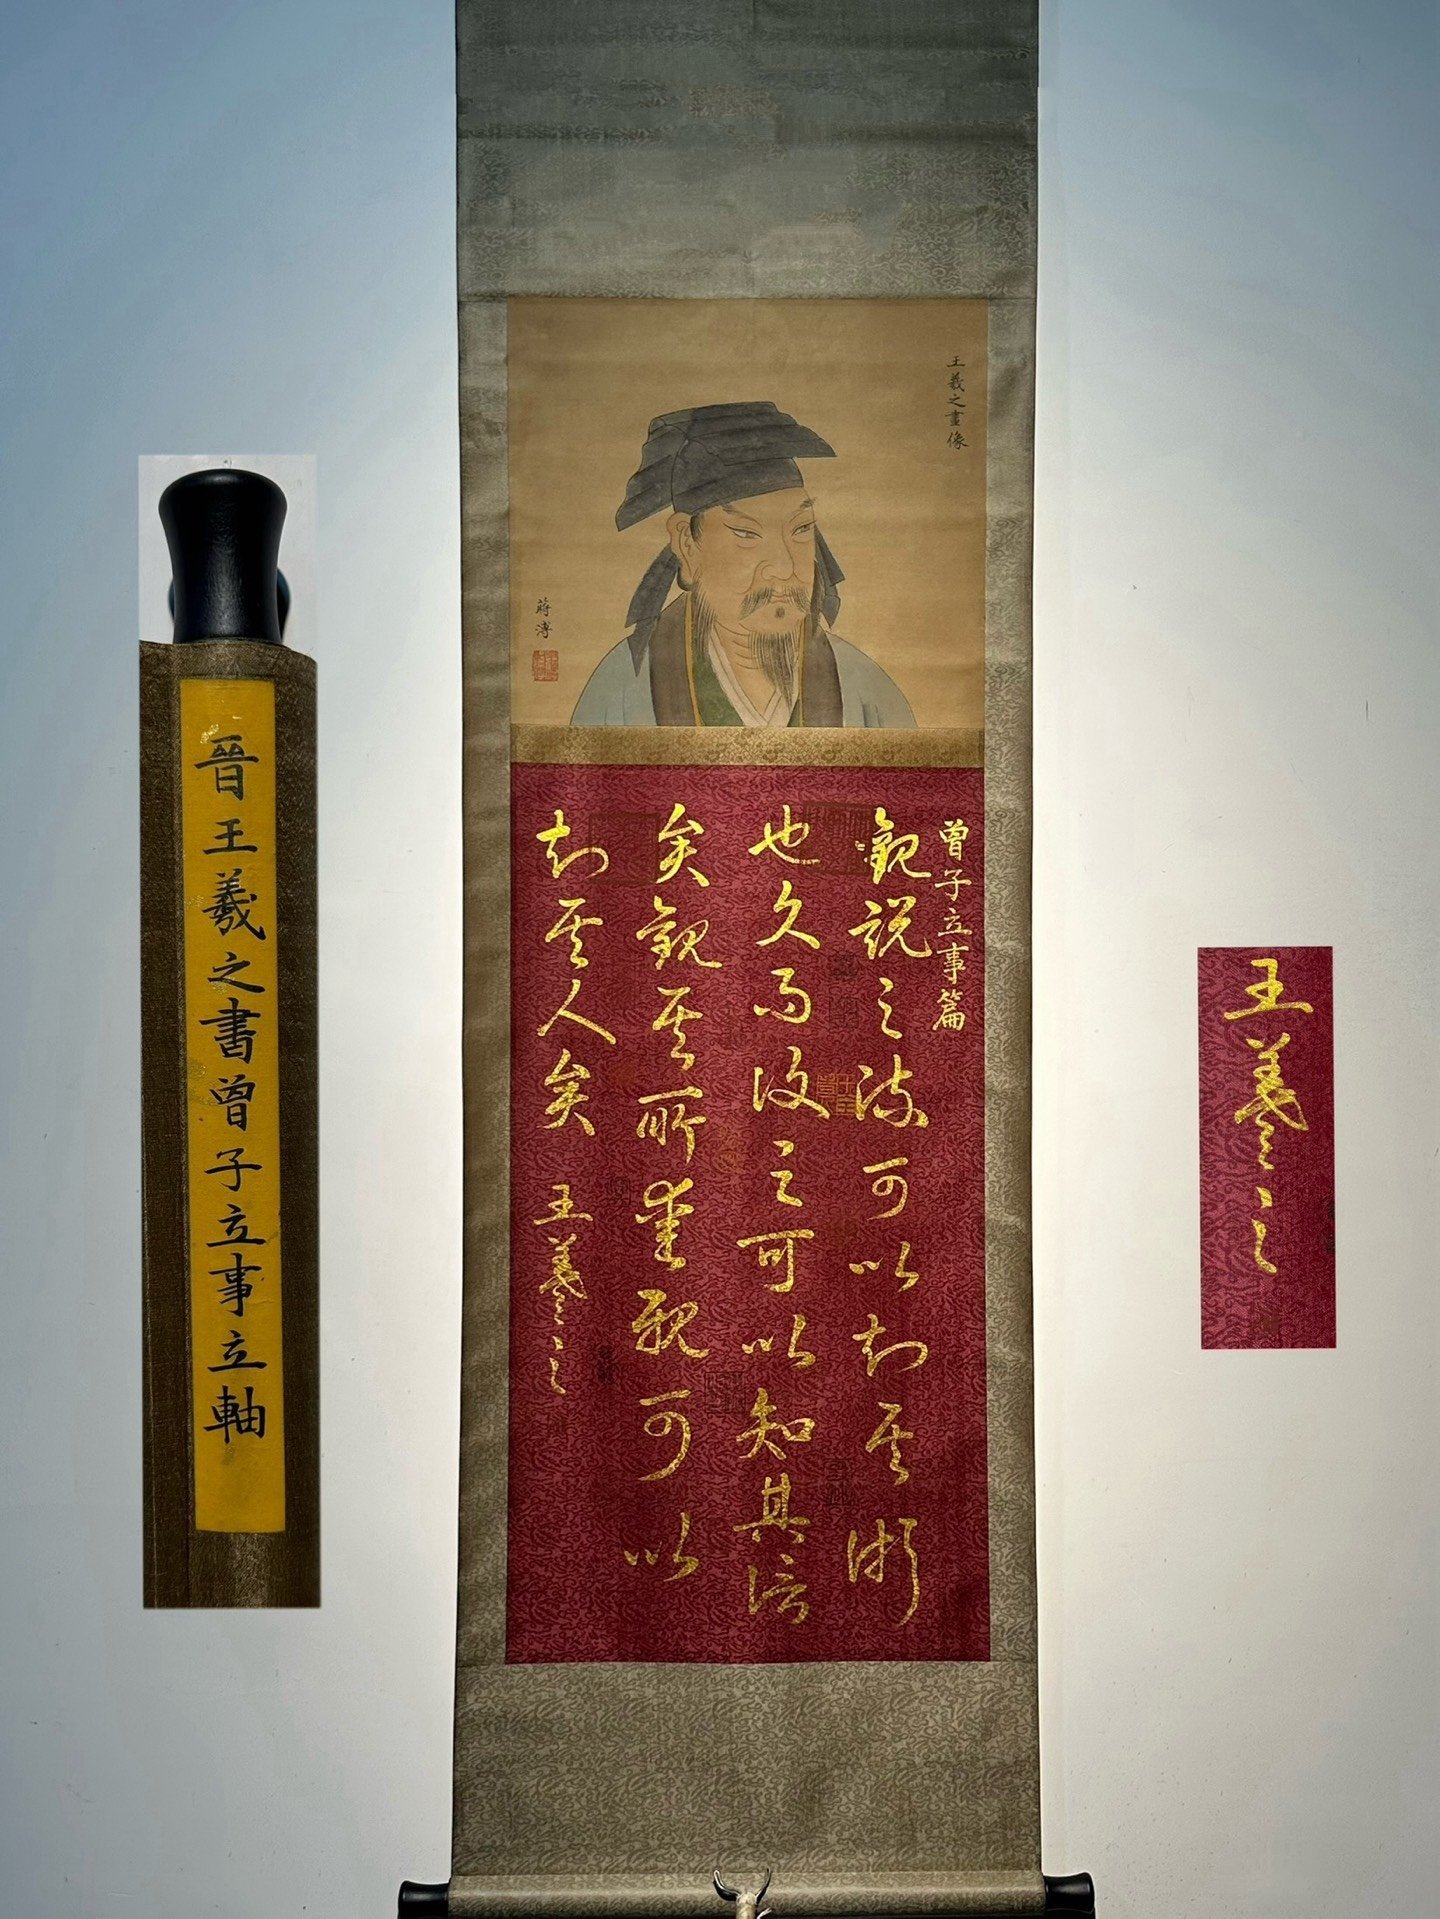 晉王羲之書曾子立事立軸
王羲之畫像
蔣溥
曾子立事篇
觀說之流可以知其術
也久而復之可以知其信
矣觀其所愛親可以
知其人矣 王羲之
王羲之